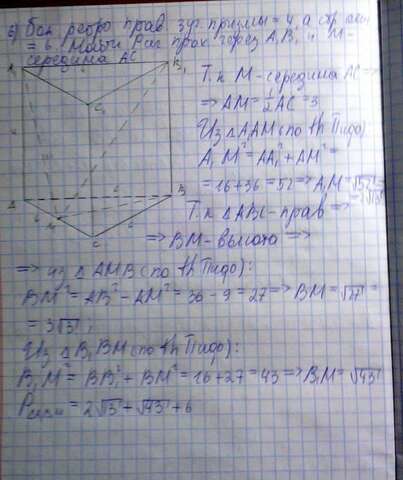 6) Бок ребро прав. 3 уг. призмы = 4, а стр. осн
= 6. Найти Рсеч прох через A₁B₁ и M-
середина AC
A₁
B₁
C₁
Т. к M-середина AC =>
=> AM = 1/2 AC = 3
Из ΔA₁AM (по th Пифо)
A₁M² = AA₁² + AM² =
= 16+36 = 52 => A₁M = √52 =
= 2√13
A
B
C
M
6
6
6
Т.к ΔABC-прав =>
=> BM-высота =>
=> из ΔAMB (по th Пифо):
BM² = AB² - AM² = 36 - 9 = 27 => BM = √27 =
= 3√3,
Из ΔB₁BM (по th Пифо):
B₁M² = BB₁² + BM² = 16+27 = 43 => B₁M = √43
Pсеч = 2√13 + √43 + 6